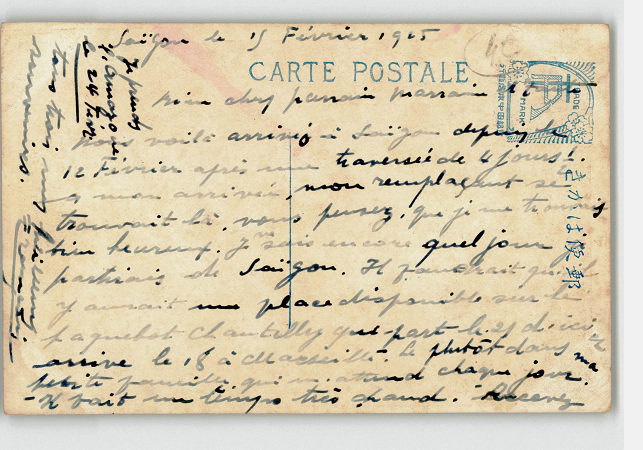 Saïgon le 15 Février 1925
CARTE POSTALE
Bien cher parrain Marraine et
Nous voilà arrivés à Saïgon depuis le
12 Février après une traversée de 4 jours !.
a mon arrivée, mon remplaçant se
trouvait là, vous pensez, que je me trouvais
bien heureux. Je ne sais encore quel jour
partirais de Saïgon. Il faudrait qu'il
y aurait une place disponible sur le
paquebot Chantilly qui part le 21 d'ici et
arrive le 18 à Marseille. le plutôt dans ma
petite famille qui m'attend chaque jour.
Il fait un temps très chaud. Recevez
tous trois mes meilleurs
souvenirs.
Je prends
l'Amazone
le 24 Févr.
TRADE MARK
きかは便郵